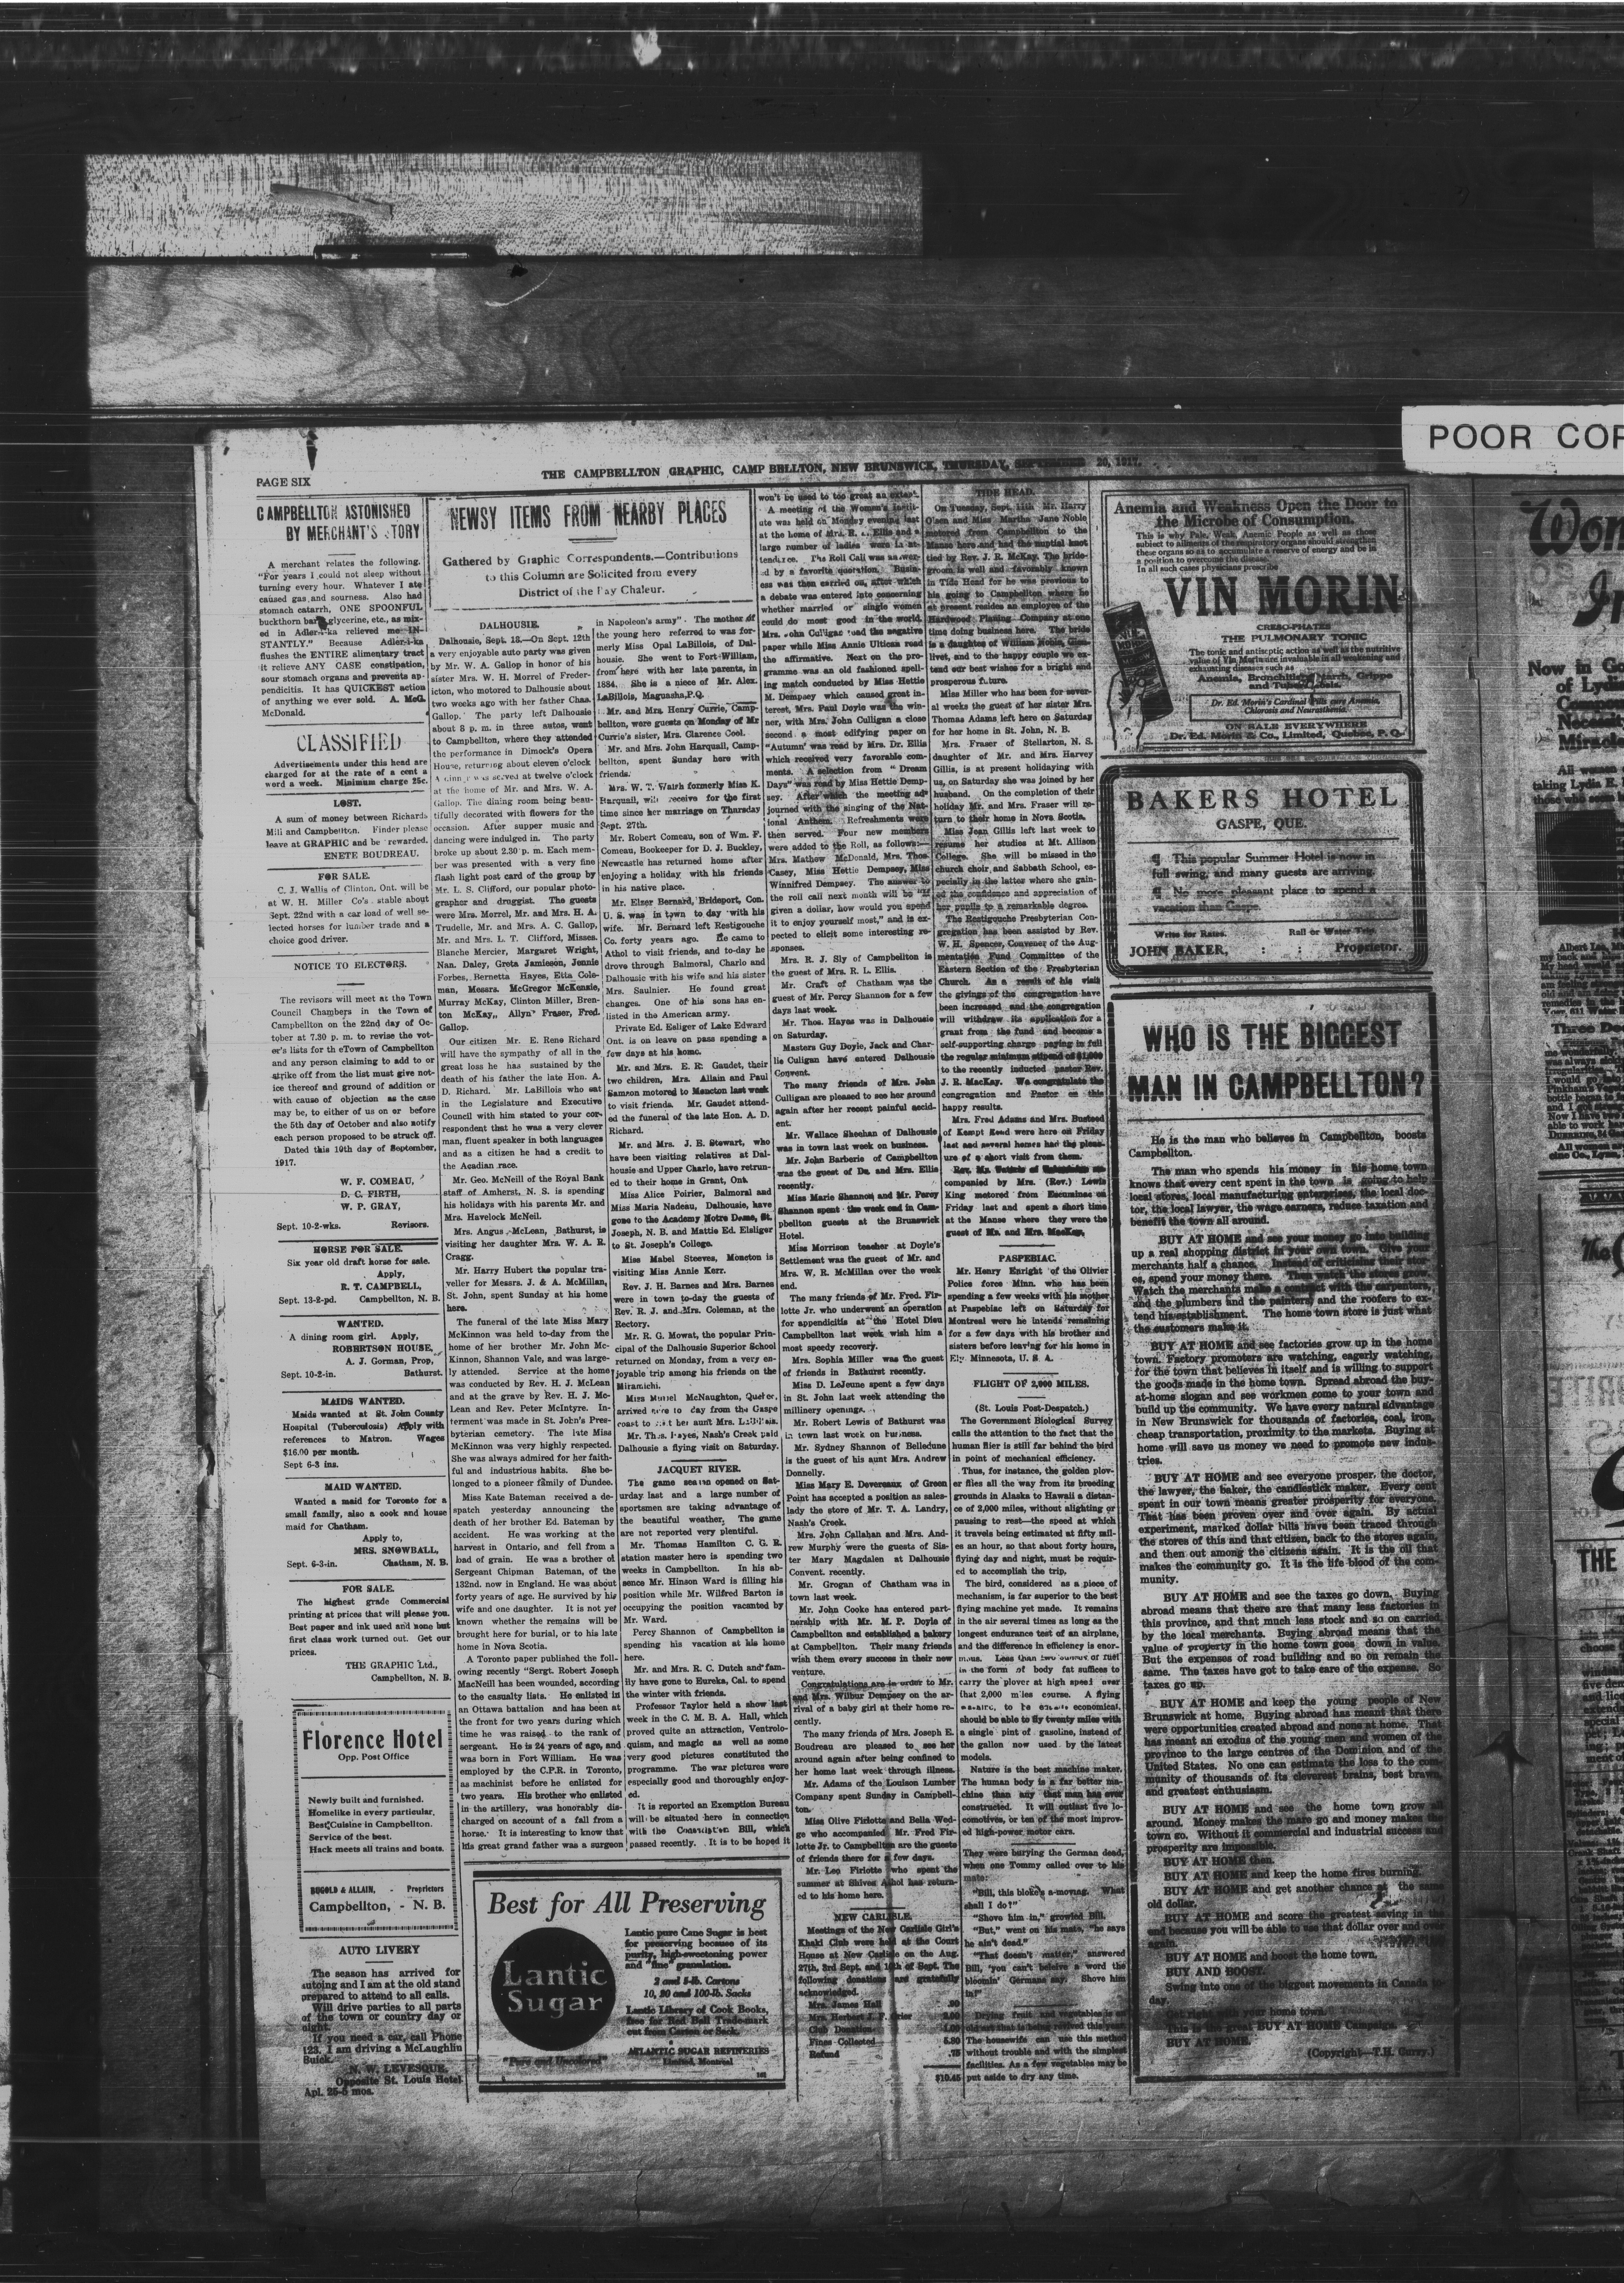 POOR COP
PAGE SIX
THE CAMPBELLTON GRAPHIC, CAMP BELLTON, NEW BRUNSWICK, THURSDAY, SEPTEMBER 20, 1917.
CAMPBELLTON ASTONISHED
BY MERCHANT'S STORY
A merchant relates the following.
"For years I could not sleep without
turning every hour. Whatever I ate
caused gas and sourness. Also had
stomach catarrh, ONE SPOONFUL
buckthorn bark glycerine, etc., as mix-
ed in Adler-i-ka relieved me IN-
STANTLY." Because Adler-i-ka
flushes the ENTIRE alimentary tract
it relieve ANY CASE constipation,
sour stomach organs and prevents ap-
pendicitis. It has QUICKEST action
of anything we ever sold. A. McG.
McDonald.
CLASSIFIED
Advertisements under this head are
charged for at the rate of a cent a
word a week. Minimum charge 25c.
LOST.
A sum of money between Richards
Mill and Campbellton. Finder please
leave at GRAPHIC and be rewarded.
ENETE BOUDREAU.
FOR SALE.
C. J. Wallis of Clinton, Ont. will be
at W. H. Miller Co's stable about
Sept. 22nd with a car load of well se-
lected horses for lumber trade and a
choice good driver.
NOTICE TO ELECTORS.
The revisors will meet at the Town
Council Chambers in the Town of
Campbellton on the 22nd day of Oc-
tober at 7.30 p. m. to revise the vot-
er's lists for th eTown of Campbellton
and any person claiming to add to or
strike off from the list must give not-
ice thereof and ground of addition or
with cause of objection as the case
may be, to either of us on or before
the 5th day of October and also notify
each person proposed to be struck off.
Dated this 10th day of September,
1917.
W. F. COMEAU,
D. C. FIRTH,
W. P. GRAY,
Sept. 10-2-wks. Revisors.
HORSE FOR SALE.
Six year old draft horse for sale.
Apply,
R. T. CAMPBELL,
Sept. 13-2-pd. Campbellton, N. B.
WANTED.
A dining room girl. Apply,
ROBERTSON HOUSE,
A. J. Gorman, Prop,
Sept. 10-2-in. Bathurst.
MAIDS WANTED.
Maids wanted at St. John County
Hospital (Tuberculosis) Apply with
references to Matron. Wages
$16.00 per month.
Sept 6-3 ins.
MAID WANTED.
Wanted a maid for Toronto for a
small family, also a cook and house
maid for Chatham.
Apply to,
MRS. SNOWBALL,
Sept. 6-3-in. Chatham, N. B.
FOR SALE.
The highest grade Commercial
printing at prices that will please you.
Best paper and ink used and none but
first class work turned out. Get our
prices.
THE GRAPHIC Ltd.,
Campbellton, N. B.
Florence Hotel
Opp. Post Office
Newly built and furnished.
Homelike in every particular.
Best Cuisine in Campbellton.
Service of the best.
Hack meets all trains and boats.
& ALLAIN, - Proprietors
Campbellton, - N. B.
AUTO LIVERY
The season has arrived for
autoing and I am at the old stand
prepared to attend to all calls.
Will drive parties to all parts
of the town or country day or
night.
If you need a car, call Phone
123. I am driving a McLaughlin
Buick.
N. W. LEVESQUE,
Opposite St. Louis Hotel
Apl. 25-5 mos.
NEWSY ITEMS FROM NEARBY PLACES
Gathered by Graphic Correspondents.—Contributions
to this Column are Solicited from every
District of the Bay Chaleur.
DALHOUSIE.
Dalhousie, Sept. 18.—On Sept. 12th
a very enjoyable auto party was given
by Mr. W. A. Gallop in honor of his
sister Mrs. W. H. Morrel of Freder-
icton, who motored to Dalhousie about
two weeks ago with her father Chas.
Gallop. The party left Dalhousie
about 8 p. m. in three autos, went
to Campbellton, where they attended
the performance in Dimock's Opera
House, returning about eleven o'clock
A dinner was served at twelve o'clock
at the home of Mr. and Mrs. W. A.
Gallop. The dining room being beau-
tifully decorated with flowers for the
occasion. After supper music and
dancing were indulged in. The party
broke up about 2.30 p. m. Each mem-
ber was presented with a very fine
flash light post card of the group by
Mr. L. S. Clifford, our popular photo-
grapher and druggist. The guests
were Mrs. Morrel, Mr. and Mrs. H. A.
Trudelle, Mr. and Mrs. A. C. Gallop,
Mr. and Mrs. L. T. Clifford, Misses.
Blanche Mercier, Margaret Wright,
Nan. Daley, Greta Jamieson, Jennie
Forbes, Bernetta Hayes, Etta Cole-
man, Messrs. McGregor McKenzie,
Murray McKay, Clinton Miller, Bren-
ton McKay,, Allyn Fraser, Fred.
Gallop.
Our citizen Mr. E. Rene Richard
will have the sympathy of all in the
great loss he has sustained by the
death of his father the late Hon. A.
D. Richard. Mr. LaBillois who sat
in the Legislature and Executive
Council with him stated to your cor-
respondent that he was a very clever
man, fluent speaker in both languages
and as a citizen he had a credit to
the Acadian race.
Mr. Geo. McNeill of the Royal Bank
staff of Amherst, N. S. is spending
his holidays with his parents Mr. and
Mrs. Havelock McNeil.
Mrs. Angus McLean, Bathurst, is
visiting her daughter Mrs. W. A. R.
Cragg.
Mr. Harry Hubert the popular tra-
veller for Messrs. J. & A. McMillan,
St. John, spent Sunday at his home
here.
The funeral of the late Miss Mary
McKinnon was held to-day from the
home of her brother Mr. John Mc-
Kinnon, Shannon Vale, and was large-
ly attended. Service at the home
was conducted by Rev. H. J. McLean
and at the grave by Rev. H. J. Mc-
Lean and Rev. Peter McIntyre. In-
terment was made in St. John's Pres-
byterian cemetery. The late Miss
McKinnon was very highly respected.
She was always admired for her faith-
ful and industrious habits. She be-
longed to a pioneer family of Dundee.
Miss Kate Bateman received a de-
spatch yesterday announcing the
death of her brother Ed. Bateman by
accident. He was working at the
harvest in Ontario, and fell from a
load of grain. He was a brother of
Sergeant Chipman Bateman, of the
132nd. now in England. He was about
forty years of age. He survived by his
wife and one daughter. It is not yet
known whether the remains will be
brought here for burial, or to his late
home in Nova Scotia.
A Toronto paper published the foll-
owing recently "Sergt. Robert Joseph
MacNeill has been wounded, according
to the casualty lists. He enlisted in
an Ottawa battalion and has been at
the front for two years during which
time he was raised to the rank of
sergeant. He is 24 years of age, and
was born in Fort William. He was
employed by the C.P.R. in Toronto,
as machinist before he enlisted for
two years. His brother who enlisted
in the artillery, was honorably dis-
charged on account of a fall from a
horse. It is interesting to know that
his great grand father was a surgeon
in Napoleon's army". The mother of
the young hero referred to was for-
merly Miss Opal LaBillois, of Dal-
housie. She went to Fort William,
from here with her late parents, in
1884. She is a niece of Mr. Alex.
LaBillois, Maguasha, P.Q.
Mr. and Mrs. Henry Currie, Camp-
bellton, were guests on Monday of Mr
Currie's sister, Mrs. Clarence Cool.
Mr. and Mrs. John Harquail, Camp-
bellton, spent Sunday here with
friends.
Mrs. W. T. Walsh formerly Miss K.
Harquail, will receive for the first
time since her marriage on Thursday
Sept. 27th.
Mr. Robert Comeau, son of Wm. F.
Comeau, Bookeeper for D. J. Buckley,
Newcastle has returned home after
enjoying a holiday with his friends
in his native place.
Mr. Elzer Bernard, Brideport, Con.
U. S. was in town to day with his
wife. Mr. Bernard left Restigouche
Co. forty years ago. He came to
Athol to visit friends, and to-day he
drove through Balmoral, Charlo and
Dalhousie with his wife and his sister
Mrs. Saulnier. He found great
changes. One of his sons has en-
listed in the American army.
Private Ed. Esliger of Lake Edward
Ont. is on leave on pass spending a
few days at his home.
Mr. and Mrs. E. R. Gaudet, their
two children, Mrs. Allain and Paul
Samson motored to Moncton last week
to visit friends. Mr. Gaudet attend-
ed the funeral of the late Hon. A. D.
Richard.
Mr. and Mrs. J. E. Stewart, who
have been visiting relatives at Dal-
housie and Upper Charlo, have retrun-
ed to their home in Grant, Ont.
Miss Alice Poirier, Balmoral and
Miss Maria Nadeau, Dalhousie, have
gone to the Academy Notre Dame, St.
Joseph, N. B. and Mattie Ed. Elsliger
to St. Joseph's College.
Miss Mabel Steeves, Moncton is
visiting Miss Annie Kerr.
Rev. J. H. Barnes and Mrs. Barnes
were in town to-day the guests of
Rev. R. J. and Mrs. Coleman, at the
Rectory.
Mr. R. G. Mowat, the popular Prin-
cipal of the Dalhousie Superior School
returned on Monday, from a very en-
joyable trip among his friends on the
Miramichi.
Miss Muriel McNaughton, Quebec,
arrived here to day from the Gaspe
coast to visit her aunt Mrs. LaBillois.
Mr. Thos. Hayes, Nash's Creek paid
Dalhousie a flying visit on Saturday.
JACQUET RIVER.
The game season opened on Sat-
urday last and a large number of
sportsmen are taking advantage of
the beautiful weather. The game
are not reported very plentiful.
Mr. Thomas Hamilton C. G. R.
station master here is spending two
weeks in Campbellton. In his ab-
sence Mr. Hinson Ward is filling his
position while Mr. Wilfred Barton is
occupying the position vacanted by
Mr. Ward.
Percy Shannon of Campbellton is
spending his vacation at his home
here.
Mr. and Mrs. R. C. Dutch and fam-
ily have gone to Eureka, Cal. to spend
the winter with friends.
Professor Taylor held a show last
week in the C. M. B. A. Hall, which
proved quite an attraction, Ventrolo-
quism, and magic as well as some
very good pictures constituted the
programme. The war pictures were
especially good and thoroughly enjoy-
ed.
It is reported an Exemption Bureau
will be situated here in connection
with the Conscription Bill, which
passed recently. It is to be hoped it
Best for All Preserving
Lantic
Sugar
"Pure and Uncolored"
Lantic pure Cane Sugar is best
for preserving because of its
purity, high-sweetening power
and "fine" granulation.
2 and 5-lb. Cartons
10, 20 and 100-lb. Sacks
Lantic Library of Cook Books,
free for Red Ball Trade-mark
cut from Carton or Sack.
ATLANTIC SUGAR REFINERIES
Limited, Montreal
won't be used to too great an extent.
A meeting of the Women's Instit-
ute was held on Monday evening last
at the home of Mrs. R. L. Ellis and a
large number of ladies were in at-
tendance. The Roll Call was answer-
ed by a favorite quotation. Busin-
ess was then carried on, after which
a debate was entered into concerning
whether married or single women
could do most good in the world.
Mrs. John Culligan read the negative
paper while Miss Annie Ultican read
the affirmative. Next on the pro-
gramme was an old fashioned spell-
ing match conducted by Miss Hettie
M. Dempsey which caused great in-
terest, Mrs. Paul Doyle was the win-
ner, with Mrs. John Culligan a close
second a most edifying paper on
"Autumn" was read by Mrs. Dr. Ellis
which received very favorable com-
ments. A selection from "Dream
Days" was read by Miss Hettie Demp-
sey. After which the meeting ad-
journed with the singing of the Nat-
ional Anthem. Refreshments were
then served. Four new members
were added to the Roll, as follows:—
Mrs. Mathew McDonald, Mrs. Thos.
Casey, Miss Hettie Dempsey, Miss
Winnifred Dempsey. The answer to
the roll call next month will be "If
given a dollar, how would you spend
it to enjoy yourself most," and is ex-
pected to elicit some interesting re-
sponses.
Mrs. R. J. Sly of Campbellton is
the guest of Mrs. R. L. Ellis.
Mr. Craft of Chatham was the
guest of Mr. Percy Shannon for a few
days last week.
Mr. Thos. Hayes was in Dalhousie
on Saturday.
Masters Guy Doyle, Jack and Char-
lie Culigan have entered Dalhousie
Convent.
The many friends of Mrs. John
Culligan are pleased to see her around
again after her recent painful accid-
ent.
Mr. Wallace Sheehan of Dalhousie
was in town last week on business.
Mr. John Barberie of Campbellton
was the guest of Dr. and Mrs. Ellis
recently.
Miss Marie Shannon and Mr. Percy
Shannon spent the week end in Cam-
pbellton guests at the Brunswick
Hotel.
Miss Morrison teacher at Doyle's
Settlement was the guest of Mr. and
Mrs. W. R. McMillan over the week
end.
The many friends of Mr. Fred. Fir-
lotte Jr. who underwent an operation
for appendicitis at the Hotel Dieu
Campbellton last week wish him a
most speedy recovery.
Mrs. Sophia Miller was the guest
of friends in Bathurst recently.
Miss D. LeJeune spent a few days
in St. John last week attending the
millinery openings.
Mr. Robert Lewis of Bathurst was
in town last week on business.
Mr. Sydney Shannon of Belledune
is the guest of his aunt Mrs. Andrew
Donnelly.
Miss Mary E. Devereaux of Green
Point has accepted a position as sales-
lady the store of Mr. T. A. Landry,
Nash's Creek.
Mrs. John Callahan and Mrs. And-
rew Murphy were the guests of Sis-
ter Mary Magdalen at Dalhousie
Convent. recently.
Mr. Grogan of Chatham was in
town last week.
Mr. John Cooke has entered part-
nership with Mr. M. P. Doyle of
Campbellton and established a bakery
at Campbellton. Their many friends
wish them every success in their new
venture.
Congratulations are in order to Mr.
and Mrs. Wilbur Dempsey on the ar-
rival of a baby girl at their home re-
cently.
The many friends of Mrs. Joseph E.
Boudreau are pleased to see her
around again after being confined to
her home last week through illness.
Mr. Adams of the Louison Lumber
Company spent Sunday in Campbell-
ton.
Miss Olive Firlotte and Bella Wed-
ge who accompanied Mr. Fred Fir-
lotte Jr. to Campbellton are the guests
of friends there for a few days.
Mr. Leo Firlotte who spent the
summer at Shives Athol has return-
ed to his home here.
NEW CARLISLE.
Meetings of the New Carlisle Girl's
Khaki Club were held at the Court
House at New Carlisle on the Aug.
27th, 3rd Sept. and 10th of Sept. The
following donations are gratefully
acknowledged.
Mrs. James Hall .20
Mrs. Herbert J. F. Grier 2.00
Club Donation
Fines Collected 5.90
Refund .75
$10.45
TIDE HEAD.
On Tuesday, Sept. 11th Mr. Harry
Olsen and Miss Martha Jane Noble
motored from Campbellton to the
Manse here and had the nuptial knot
tied by Rev. J. R. McKay. The bride-
groom is well and favorably known
in Tide Head for he was previous to
his going to Campbellton where he
at present resides an employee of the
Hardwood Planing Company at one
time doing business here. The bride
is a daughter of William Noble, Glen-
livet, and to the happy couple we ex-
tend our best wishes for a bright and
prosperous future.
Miss Miller who has been for sever-
al weeks the guest of her sister Mrs.
Thomas Adams left here on Saturday
for her home in St. John, N. B.
Mrs. Fraser of Stellarton, N. S.
daughter of Mr. and Mrs. Harvey
Gillis, is at present holidaying with
us, on Saturday she was joined by her
husband. On the completion of their
holiday Mr. and Mrs. Fraser will re-
turn to their home in Nova Scotia.
Miss Jean Gillis left last week to
resume her studies at Mt. Allison
College. She will be missed in the
church choir, and Sabbath School, es-
pecially in the latter where she gain-
ed the confidence and appreciation of
her pupils to a remarkable degree.
The Restigouche Presbyterian Con-
gregation has been assisted by Rev.
W. H. Spencer, Convener of the Aug-
mentation Fund Committee of the
Eastern Section of the Presbyterian
Church. As a result of his visit
the givings of the congregation have
been increased and the congregation
will withdraw its application for a
grant from the fund and become a
self-supporting charge paying in full
the regular minimum stipend of $1,000
to the recently inducted pastor Rev.
J. R. MacKay. We congratulate the
congregation and Pastor on this
happy results.
Mrs. Fred Adams and Mrs. Busteed
of Kempt Road were here on Friday
last and several homes had the pleas-
ure of a short visit from them.
companied by Mrs. (Rev.) Lewis
King motored from Escuminac on
Friday last and spent a short time
at the Manse where they were the
guest of Mr. and Mrs. MacKay.
PASPEBIAC.
Mr. Henry Enright of the Olivier
Police force Minn. who has been
spending a few weeks with his mother
at Paspebiac left on Saturday for
Montreal were he intends remaining
for a few days with his brother and
sisters before leaving for his home in
Ely Minnesota, U. S. A.
FLIGHT OF 2,000 MILES.
(St. Louis Post-Despatch.)
The Government Biological Survey
calls the attention to the fact that the
human flier is still far behind the bird
in point of mechanical efficiency.
Thus, for instance, the golden plov-
er flies all the way from its breeding
grounds in Alaska to Hawaii a distan-
ce of 2,000 miles, without alighting or
pausing to rest—the speed at which
it travels being estimated at fifty mil-
es an hour, so that about forty hours,
flying day and night, must be requir-
ed to accomplish the trip,
The bird, considered as a piece of
mechanism, is far superior to the best
flying machine yet made. It remains
in the air several times as long as the
longest endurance test of an airplane,
and the difference in efficiency is enor-
mous. Less than two ounces of fuel
in the form of body fat suffices to
carry the plover at high speed over
that 2,000 miles course. A flying
machine, to be equally economical,
should be able to fly twenty miles with
a single pint of gasoline, instead of
the gallon now used by the latest
models.
Nature is the best machine maker.
The human body is a far better ma-
chine than any that man has ever
constructed. It will outlast five lo-
comotives, or ten of the most improv-
ed high-power motor cars.
They were burying the German dead,
when one Tommy called over to his
mate:
"Bill, this bloke's a-moving. What
shall I do?"
"Shove him in," growled Bill.
"But," went on his mate, "he says
he ain't dead."
"That doesn't matter," answered
Bill, 'you can't beleive a word the
bloomin' Germans say. Shove him
in!"
Drying fruit and vegetables is an
old art that is being revived this year.
The housewife can use this method
without trouble and with the simplest
facilities. As a few vegetables may be
put aside to dry any time.
Anemia and Weakness Open the Door to
the Microbe of Consumption.
This is why Pale, Weak, Anemic People as well as those
subject to ailments of the respiratory organs should strengthen
these organs so as to accumulate a reserve of energy and be in
a position to overcome the disease.
In all such cases physicians prescribe
VIN MORIN
CRESO-PHATES
THE PULMONARY TONIC
The tonic and antiseptic action as well as the nutritive
value of Vin Morin are invaluable in all weakening and
exhausting diseases such as
Anemia, Bronchitis, Catarrh, Grippe
and Tuberculosis.
Dr. Ed. Morin's Cardinal Pills cure Anemia,
Chlorosis and Neurasthenia.
ON SALE EVERYWHERE
Dr. Ed. Morin & Co., Limited, Quebec, P. Q.
BAKERS HOTEL
GASPE, QUE.
¶ This popular Summer Hotel is now in
full swing, and many guests are arriving.
¶ No more pleasant place to spend a
vacation than Gaspe.
Write for Rates. Rail or Water Trip.
JOHN BAKER, : : Proprietor.
WHO IS THE BIGGEST
MAN IN CAMPBELLTON?
He is the man who believes in Campbellton, boosts
Campbellton.
The man who spends his money in his home town
knows that every cent spent in the town is going to help
local stores, local manufacturing enterprises, the local doc-
tor, the local lawyer, the wage earners, reduce taxation and
benefit the town all around.
BUY AT HOME and see your money go into building
up a real shopping district in your own town. Give your
merchants half a chance. Instead of criticising their stor-
es, spend your money there. Then watch the stores grow.
Watch the merchants make a contract with the carpenters,
and the plumbers and the painters, and the roofers to ex-
tend his establishment. The home town store is just what
the customers make it.
BUY AT HOME and see factories grow up in the home
town. Factory promoters are watching, eagerly watching,
for the town that believes in itself and is willing to support
the goods made in the home town. Spread abroad the buy-
at-home slogan and see workmen come to your town and
build up the community. We have every natural advantage
in New Brunswick for thousands of factories, coal, iron,
cheap transportation, proximity to the markets. Buying at
home will save us money we need to promote new indus-
tries.
BUY AT HOME and see everyone prosper, the doctor,
the lawyer, the baker, the candlestick maker. Every cent
spent in our town means greater prosperity for everyone.
That has been proven over and over again. By actual
experiment, marked dollar bills have been traced through
the stores of this and that citizen, back to the stores again,
and then out among the citizens again. It is the oil that
makes the community go. It is the life blood of the com-
munity.
BUY AT HOME and see the taxes go down. Buying
abroad means that there are that many less factories in
this province, and that much less stock and so on carried
by the local merchants. Buying abroad means that the
value of property in the home town goes down in value.
But the expenses of road building and so on remain the
same. The taxes have got to take care of the expense. So
taxes go up.
BUY AT HOME and keep the young people of New
Brunswick at home. Buying abroad has meant that there
were opportunities created abroad and none at home. That
has meant an exodus of the young men and women of the
province to the large centres of the Dominion and of the
United States. No one can estimate the loss to the com-
munity of thousands of its cleverest brains, best brawn,
and greatest enthusiasm.
BUY AT HOME and see the home town grow all
around. Money makes the mare go and money makes the
town so. Without it commercial and industrial success and
prosperity are impossible.
BUY AT HOME then.
BUY AT HOME and keep the home fires burning.
BUY AT HOME and get another chance at the same
old dollar.
BUY AT HOME and score the greatest saving in the
end because you will be able to use that dollar over and over
again.
BUY AT HOME and boost the home town.
BUY AND BOOST.
Swing into one of the biggest movements in Canada to-
day.
Get right with your home town.
This is the great BUY AT HOME Campaign.
BUY AT HOME.
(Copyright—T.H. Curry.)
Now in G
of Lyd
Miracle
taking Lydia E.
those who seem
Albert Lea, M
my back and
My head would
Three Do
All women
THE